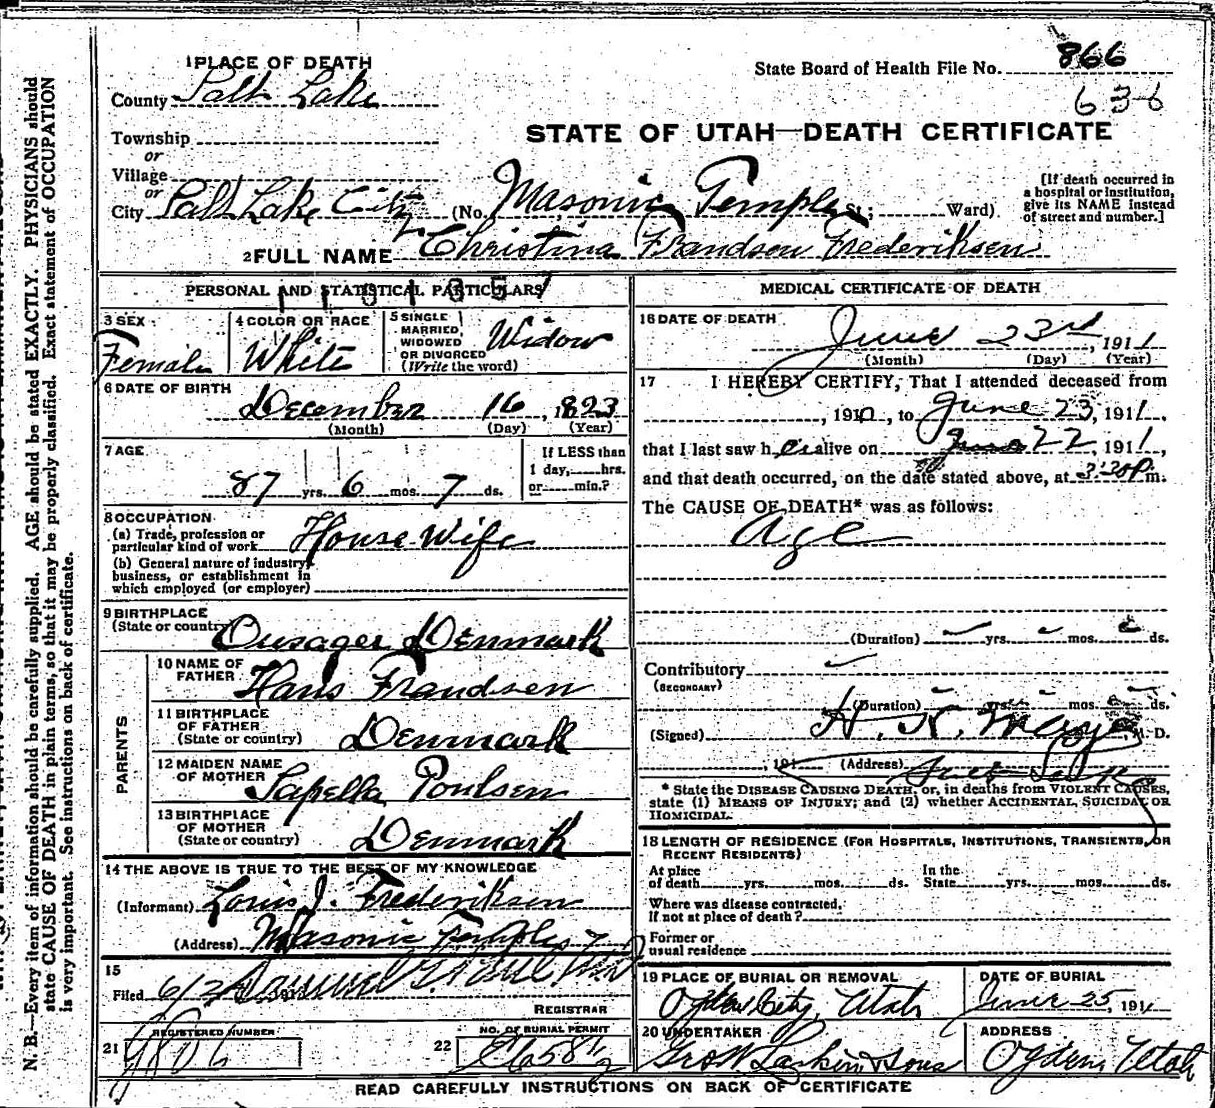 1 PLACE OF DEATH
State Board of Health File No. 866
County Salt Lake
636
Township
STATE OF UTAH—DEATH CERTIFICATE
or
Village
or
City Salt Lake City (No. Masonic Temple St.; Ward)
[If death occurred in
a hospital or institution,
give its NAME instead
of street and number.]
2 FULL NAME Christina Frandsen Frederiksen
PERSONAL AND STATISTICAL PARTICULARS
3 SEX Female
4 COLOR OR RACE White
5 SINGLE
MARRIED,
WIDOWED
OR DIVORCED
(Write the word) Widow
6 DATE OF BIRTH
December 16, 1823
(Month) (Day) (Year)
7 AGE
87 yrs. 6 mos. 7 ds.
If LESS than
1 day, hrs.
or min.?
8 OCCUPATION
(a) Trade, profession or
particular kind of work House Wife
(b) General nature of industry,
business, or establishment in
which employed (or employer)
9 BIRTHPLACE
(State or country) Ousager Denmark
PARENTS
10 NAME OF
FATHER Hans Frandsen
11 BIRTHPLACE
OF FATHER
(State or country) Denmark
12 MAIDEN NAME
OF MOTHER Sapella Poulsen
13 BIRTHPLACE
OF MOTHER
(State or country) Denmark
14 THE ABOVE IS TRUE TO THE BEST OF MY KNOWLEDGE
(Informant) Louis J. Frederiksen
(Address) Masonic Temple
15
Filed 6/2 191 Samuel G.
REGISTRAR
REGISTERED NUMBER
21
NO. OF BURIAL PERMIT
22
MEDICAL CERTIFICATE OF DEATH
16 DATE OF DEATH
June 23rd, 1911
(Month) (Day) (Year)
17 I HEREBY CERTIFY, That I attended deceased from
, 1910, to June 23, 1911,
that I last saw her alive on June 22, 1911,
and that death occurred, on the date stated above, at 3:30 P m.
The CAUSE OF DEATH* was as follows:
Age
(Duration) yrs. mos. ds.
Contributory
(SECONDARY)
(Duration) yrs. mos. ds.
(Signed) M. D.
, 191 (Address) Salt Lake
* State the DISEASE CAUSING DEATH, or, in deaths from VIOLENT CAUSES,
state (1) MEANS OF INJURY; and (2) whether ACCIDENTAL, SUICIDAL OR
HOMICIDAL.
18 LENGTH OF RESIDENCE (FOR HOSPITALS, INSTITUTIONS, TRANSIENTS, OR
RECENT RESIDENTS)
At place
of death yrs. mos. ds.
In the
State yrs. mos. ds.
Where was disease contracted,
If not at place of death?
Former or
usual residence
19 PLACE OF BURIAL OR REMOVAL
Ogden City, Utah
DATE OF BURIAL
June 25, 1911
20 UNDERTAKER
Geo W. Larkin & Sons
ADDRESS
Ogden, Utah
READ CAREFULLY INSTRUCTIONS ON BACK OF CERTIFICATE
N. B.—Every item of information should be carefully supplied. AGE should be stated EXACTLY. PHYSICIANS should
state CAUSE OF DEATH in plain terms, so that it may be properly classified. Exact statement of OCCUPATION
is very important. See instructions on back of certificate.